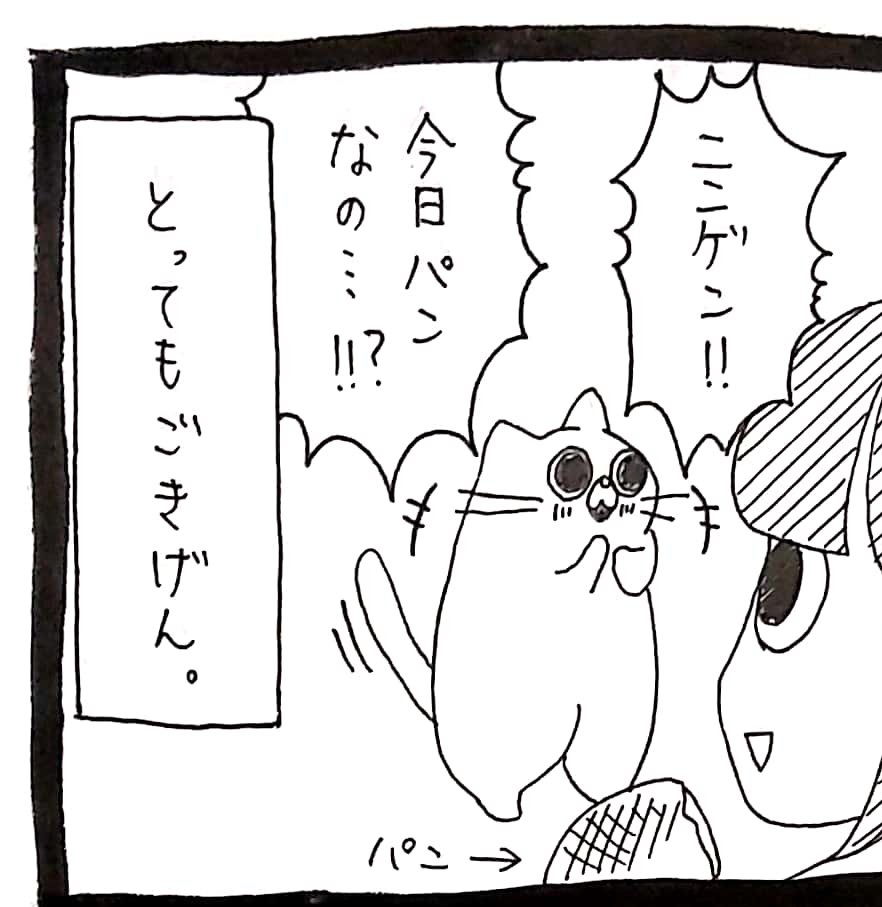 ニンゲン!!
今日パン
なの…!!?
とってもごきげん。
パン→